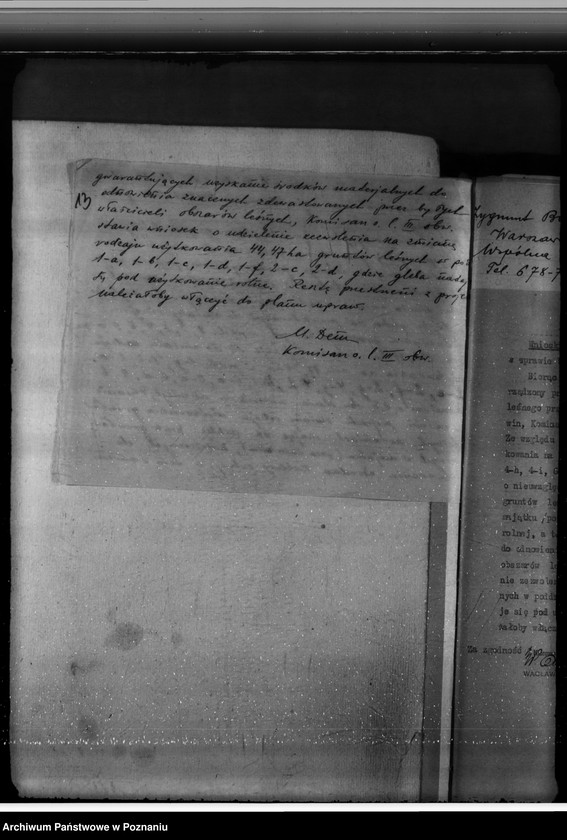 13
gwarantujących uzyskanie środków materjalnych do
odnowienia znacznych zdewastowanych przez by
właścicieli obszarów leśnych, Komisarz o. l. III obw.
stawia wniosek o udzielenie zezwolenia na zmianę
rodzaju użytkowania 44,47 ha gruntów leśnych w
1-a, 1-b, 1-c, 1-d, 1-f, 2-c, 2-d, gdzie gleba
się pod użytkowanie rolne. Resztę przestrzeni z
należałoby włączyć do planu upraw.
M. Dem
Komisarz o. l. III obw.
Zygmunt B
Warszaw
Wspólna
Tel. 878-7
Wniosek
w sprawie
Biorąc
rządzony
leśnego
win, Komisa
Ze względu
kowania na
4-h, 4-i,
o nieuwzglę
gruntów le
majątku
rolnej, a
do odnowien
obszarów le
nie zezwole
nych w
je się pod
wałoby włącz
Za zgodność
WACŁAW
Archiwum Państwowe w Poznaniu